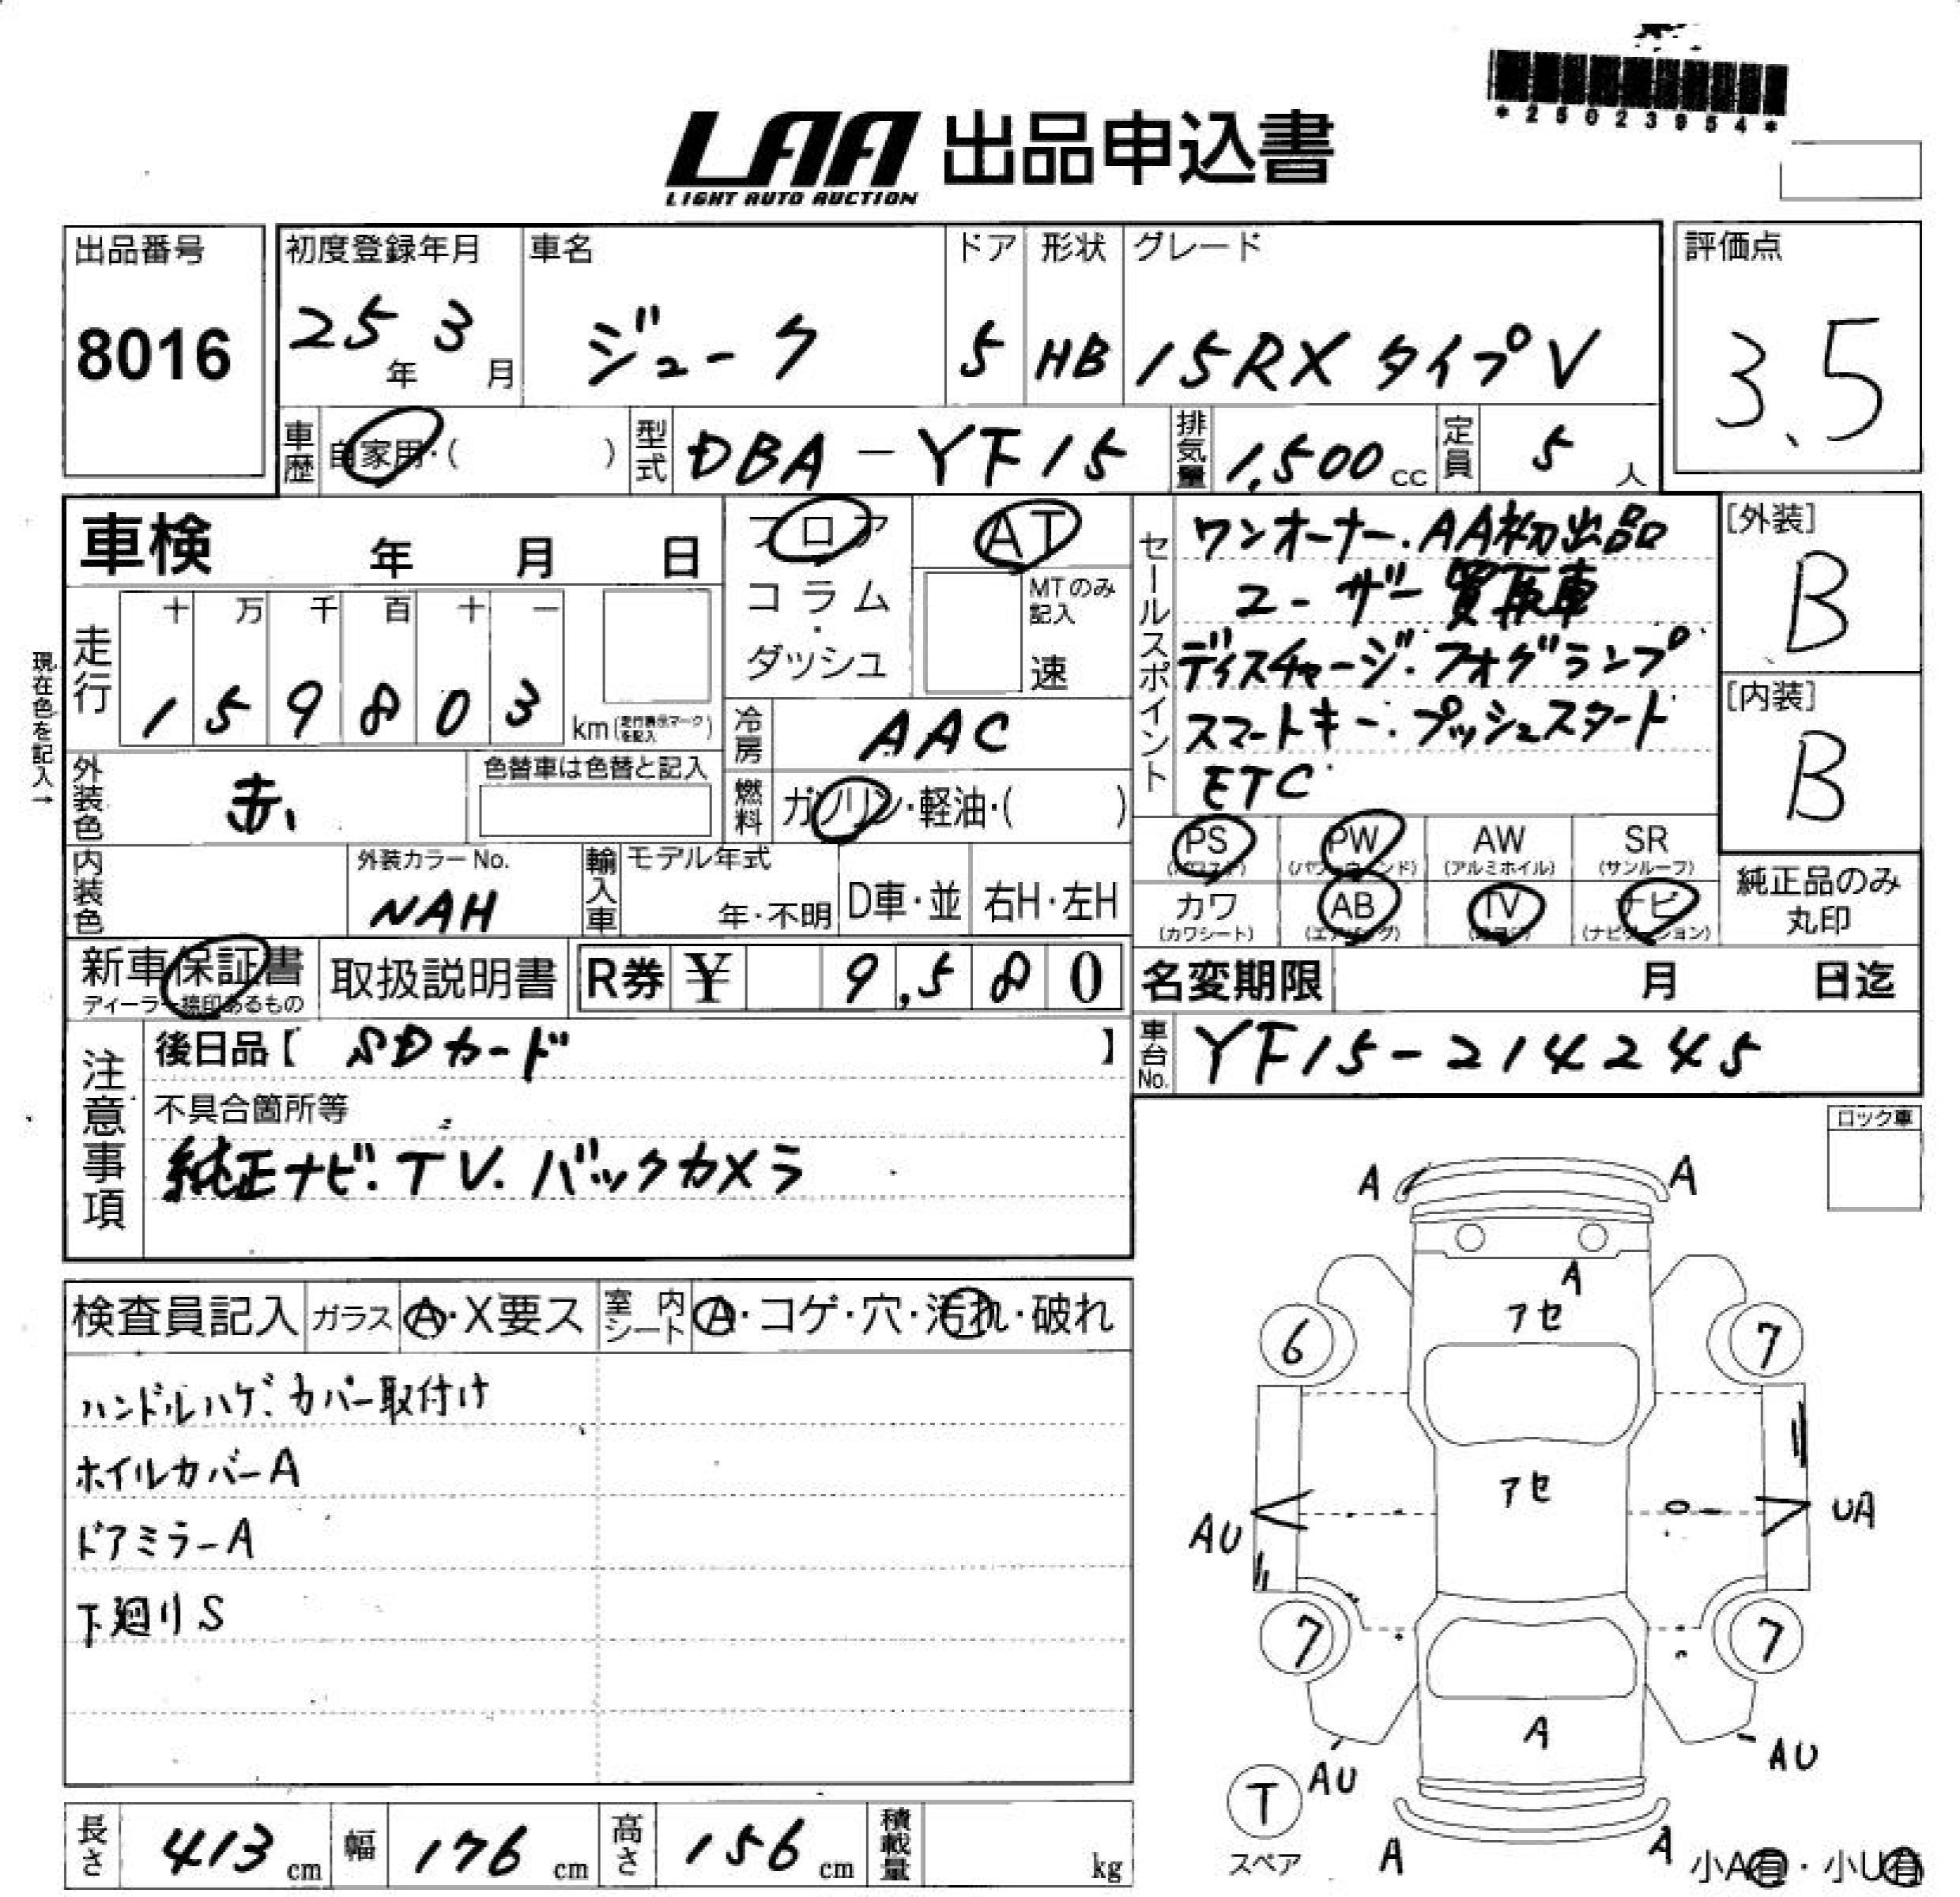 *25023954*
LAA 出品申込書
LIGHT AUTO AUCTION
出品番号 初度登録年月 車名 ドア 形状 グレード 評価点
8016 25年 3月 ジューク 5 HB 15RX タイプV 3.5
車歴 自家用・( ) 型式 DBA-YF15 排気量 1,500 cc 定員 5 人
車検 年 月 日
フロア AT
コラム・ダッシュ
MTのみ記入 速
セールスポイント
ワンオーナー.AA初出品
ユーザー買取車
ディスチャージ.フォグランプ
スマートキー.プッシュスタート
ETC
[外装]
B
[内装]
B
現在色を記入→
走行 十 万 千 百 十 一
1 5 9 8 0 3 km(走行表示マークを記入)
冷房 AAC
外装色 赤 色替車は色替と記入
燃料 ガソリン・軽油・( )
PS (パワステ) PW (パワーウィンド) AW (アルミホイル) SR (サンルーフ)
カワ (カワシート) AB (エアバッグ) TV (テレビ) ナビ (ナビゲーション)
純正品のみ
丸印
内装色 外装カラーNo. NAH 輸入車 モデル年式 年・不明 D車・並 右H・左H
新車保証書 取扱説明書 R券 ¥ 9,580 名変期限 月 日迄
ディーラー捺印あるもの
車台No. YF15-214245
注意事項
後日品【 SDカード 】
不具合箇所等
純正ナビ.TV.バックカメラ
ロック車
検査員記入 ガラス A・X要ス 室内シート A・コゲ・穴・汚れ・破れ
ハンドルハゲ.カバー取付け
ホイルカバーA
ドアミラーA
下廻りS
A A
A
アセ
6 7
アセ
AU UA
7 7
A
AU AU
T
スペア
A A
小A有・小U有
長さ 413 cm 幅 176 cm 高さ 156 cm 積載量 kg